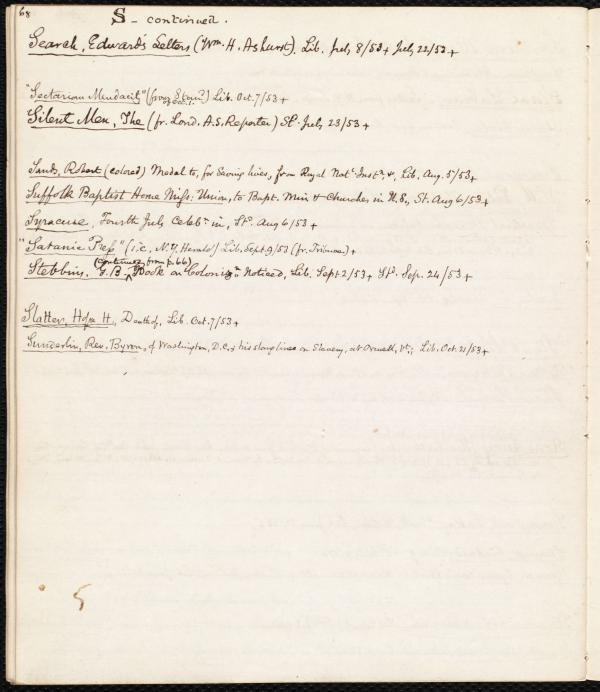 68
S - continued.
Search, Edward's Letters (Wm. H. Ashurst). Lib. July 8/53+ July 22/53+
"Sectarian Mendacity" (from ) Lib. Oct. 7/53+
Silent Men, The (fr. Lond. A.S. Reporter) St. July 23/53+
Sands, Robert (colored) Medal to, for Saving lives, from Royal Natl. Inst., &c, Lib. Aug. 5/53+
Suffolk Baptist Home Miss: Union, to Bapt. Min & Churches in U.S., St. Aug 6/53+
Syracuse, Fourth July Celebn. in, Std. Aug 6/53+
"Satanic Press" (i.e., N.Y. Herald) Lib. Sept. 9/53 (fr. Tribune)+
(continued from p. 66)
Stebbins, G.B. Book on Colonizn. Noticed, Lib. Sept 2/53+ Std. Sep. 24/53+
Slatter, Hope H., Death of, Lib. Oct. 7/53+
Sunderlin, Rev. Byron, of Washington, D.C. & his slang lines on Slavery, at Orwell, Vt.; Lib. Oct. 21/53+